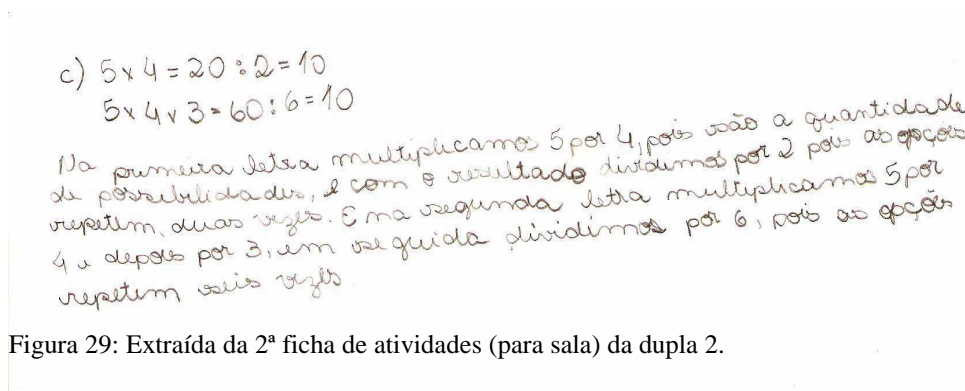 c) 5x4=20:2=10
5x4x3=60:6=10
Na primeira letra multiplicamos 5 por 4, pois são a quantidade
de possibilidades, e com o resultado dividimos por 2 pois as opções
repetem duas vezes. E na segunda letra multiplicamos 5 por
4 e depois por 3, em seguida dividimos por 6, pois as opções
repetem seis vezes.
Figura 29: Extraída da 2ª ficha de atividades (para sala) da dupla 2.